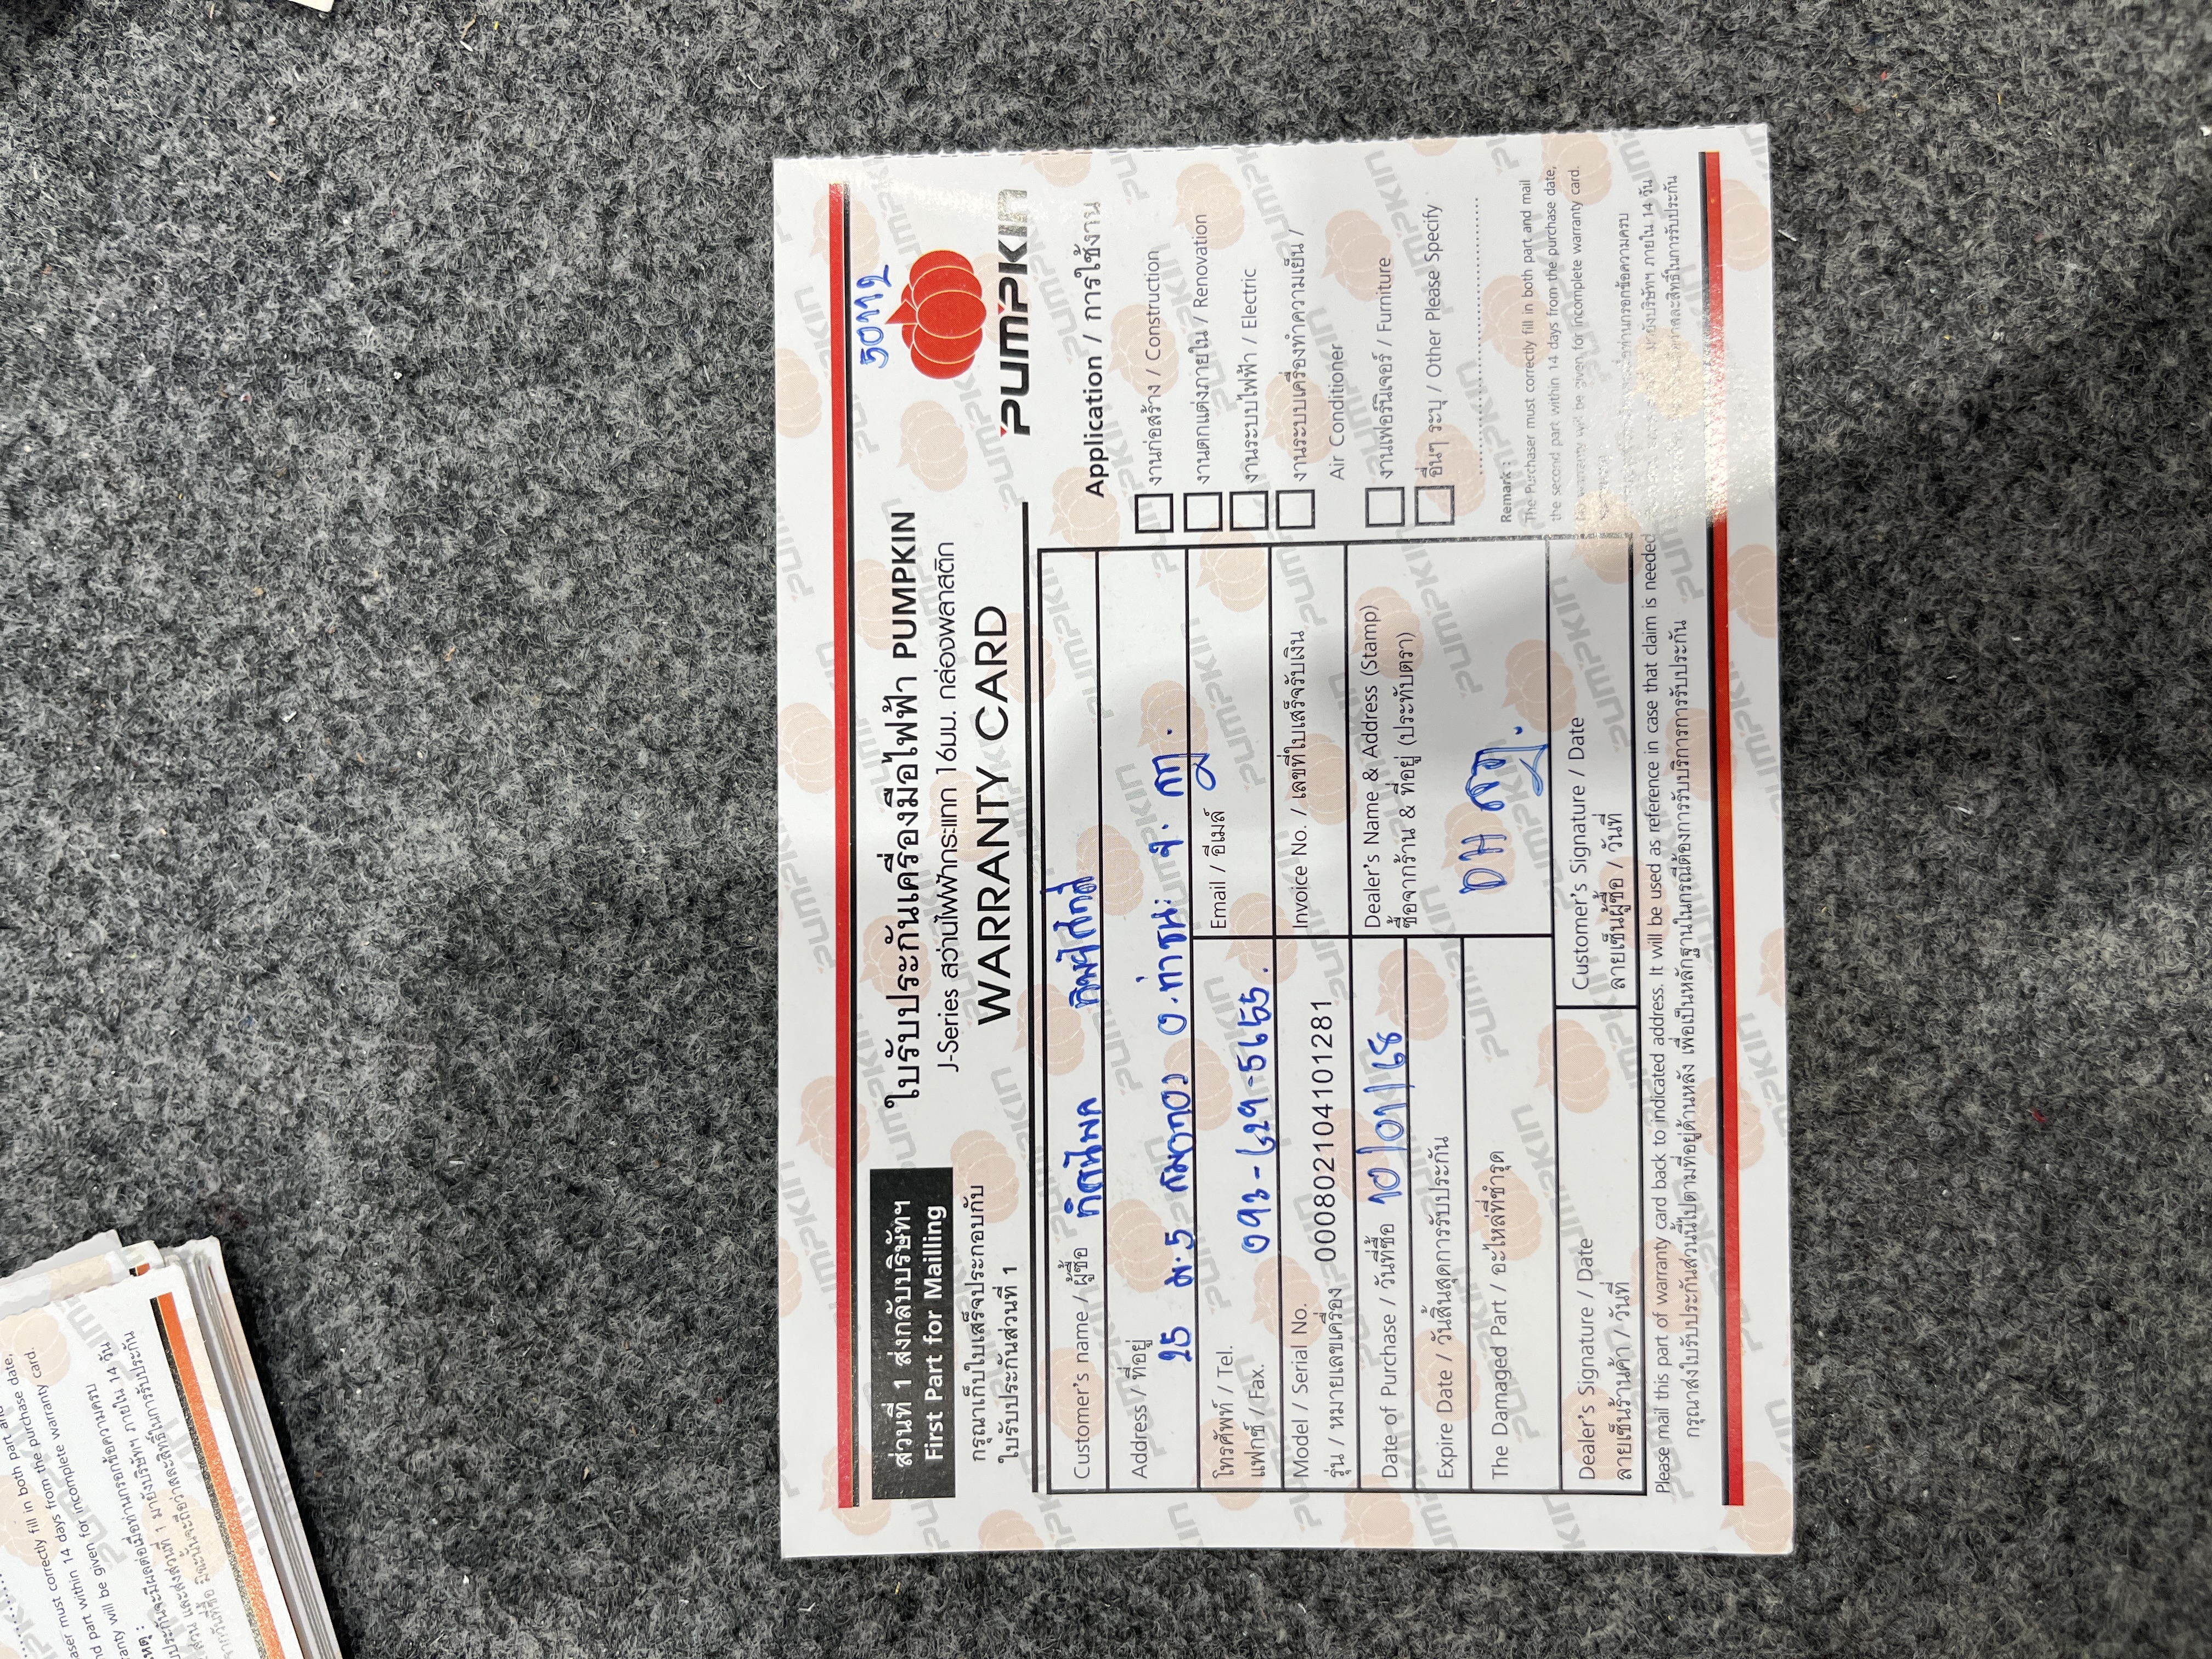 50112
ส่วนที่ 1 ส่งกลับบริษัทฯ
First Part for Mailling
กรุณาเก็บใบเสร็จประกอบกับ
ใบรับประกันส่วนที่ 1
ใบรับประกันเครื่องมือไฟฟ้า PUMPKIN
J-Series สว่านไฟฟ้ากระแทก 16มม. กล่องพลาสติก
WARRANTY CARD
PUMPKIN
Customer's name / ผู้ซื้อ
Address / ที่อยู่ 25 ม.5
อ.ท่าชนะ จ.
โทรศัพท์ / Tel.
แฟกซ์ / Fax.
Email / อีเมล์
Model / Serial No.
รุ่น / หมายเลขเครื่อง 000802104101281
Invoice No. / เลขที่ใบเสร็จรับเงิน
Date of Purchase / วันที่ซื้อ 10/01/68
Expire Date / วันสิ้นสุดการรับประกัน
Dealer's Name & Address (Stamp)
ชื่อจากร้าน & ที่อยู่ (ประทับตรา)
DH
The Damaged Part / อะไหล่ที่ชำรุด
Dealer's Signature / Date
ลายเซ็นร้านค้า / วันที่
Customer's Signature / Date
ลายเซ็นผู้ซื้อ / วันที่
Application / การใช้งาน
งานก่อสร้าง / Construction
งานตกแต่งภายใน / Renovation
งานระบบไฟฟ้า / Electric
งานระบบเครื่องทำความเย็น /
Air Conditioner
งานเฟอร์นิเจอร์ / Furniture
อื่นๆ ระบุ / Other Please Specify
Remark :
The Purchaser must correctly fill in both part and mail
the second part within 14 days from the purchase date,
No warranty will be given for incomplete warranty card.
Please mail this part of warranty card back to indicated address. It will be used as reference in case that claim is needed
กรุณาส่งใบรับประกันส่วนนี้ไปตามที่อยู่ด้านหลัง เพื่อเป็นหลักฐานในกรณีต้องการรับบริการการรับประกัน